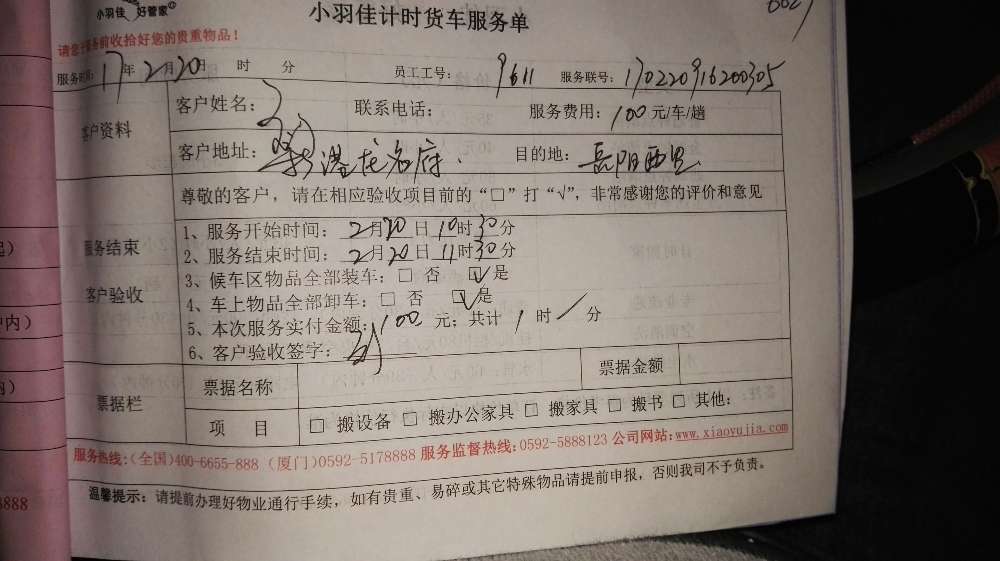 小羽佳 好管家
小羽佳计时货车服务单
请您于服务前收拾好您的贵重物品！
服务时间：17年2月20日 时 分 员工工号：9611 服务联号：170220916200305
客户资料
客户姓名： 联系电话： 服务费用：100元/车/趟
客户地址： 港龙名府 目的地：岳阳西里
尊敬的客户，请在相应验收项目前的“□”打“√”，非常感谢您的评价和意见
服务结束
客户验收
1、服务开始时间：2月20日10时30分
2、服务结束时间：2月20日11时30分
3、候车区物品全部装车：□ 否 ☑ 是
4、车上物品全部卸车：□ 否 ☑ 是
5、本次服务实付金额：100 元；共计 1 时 / 分
6、客户验收签字：
票据栏
票据名称 票据金额
项 目 □ 搬设备 □ 搬办公家具 □ 搬家具 □ 搬书 □ 其他：
服务热线：(全国)400-6655-888 (厦门)0592-5178888 服务监督热线：0592-5888123 公司网站：www.xiaoyujia.com
温馨提示：请提前办理好物业通行手续，如有贵重、易碎或其它特殊物品请提前申报，否则我司不予负责。